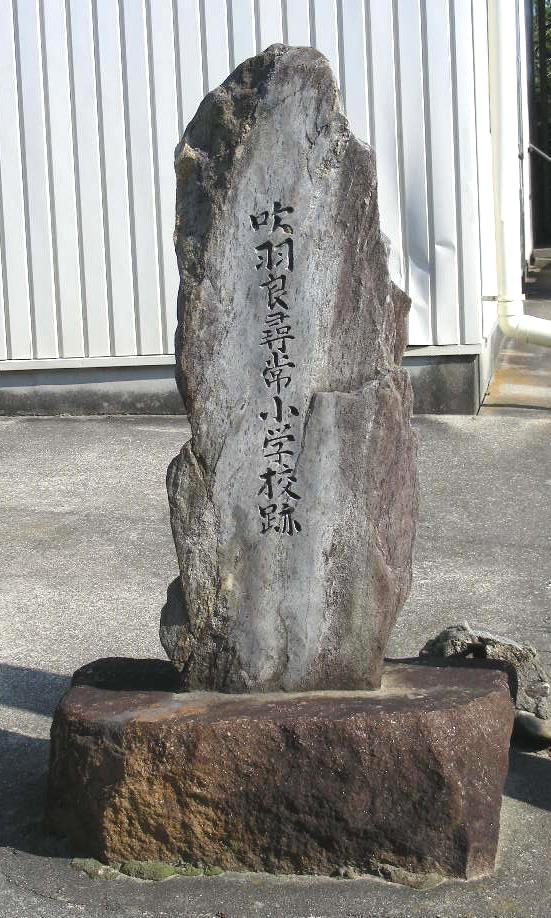 吹羽良尋常小学校跡